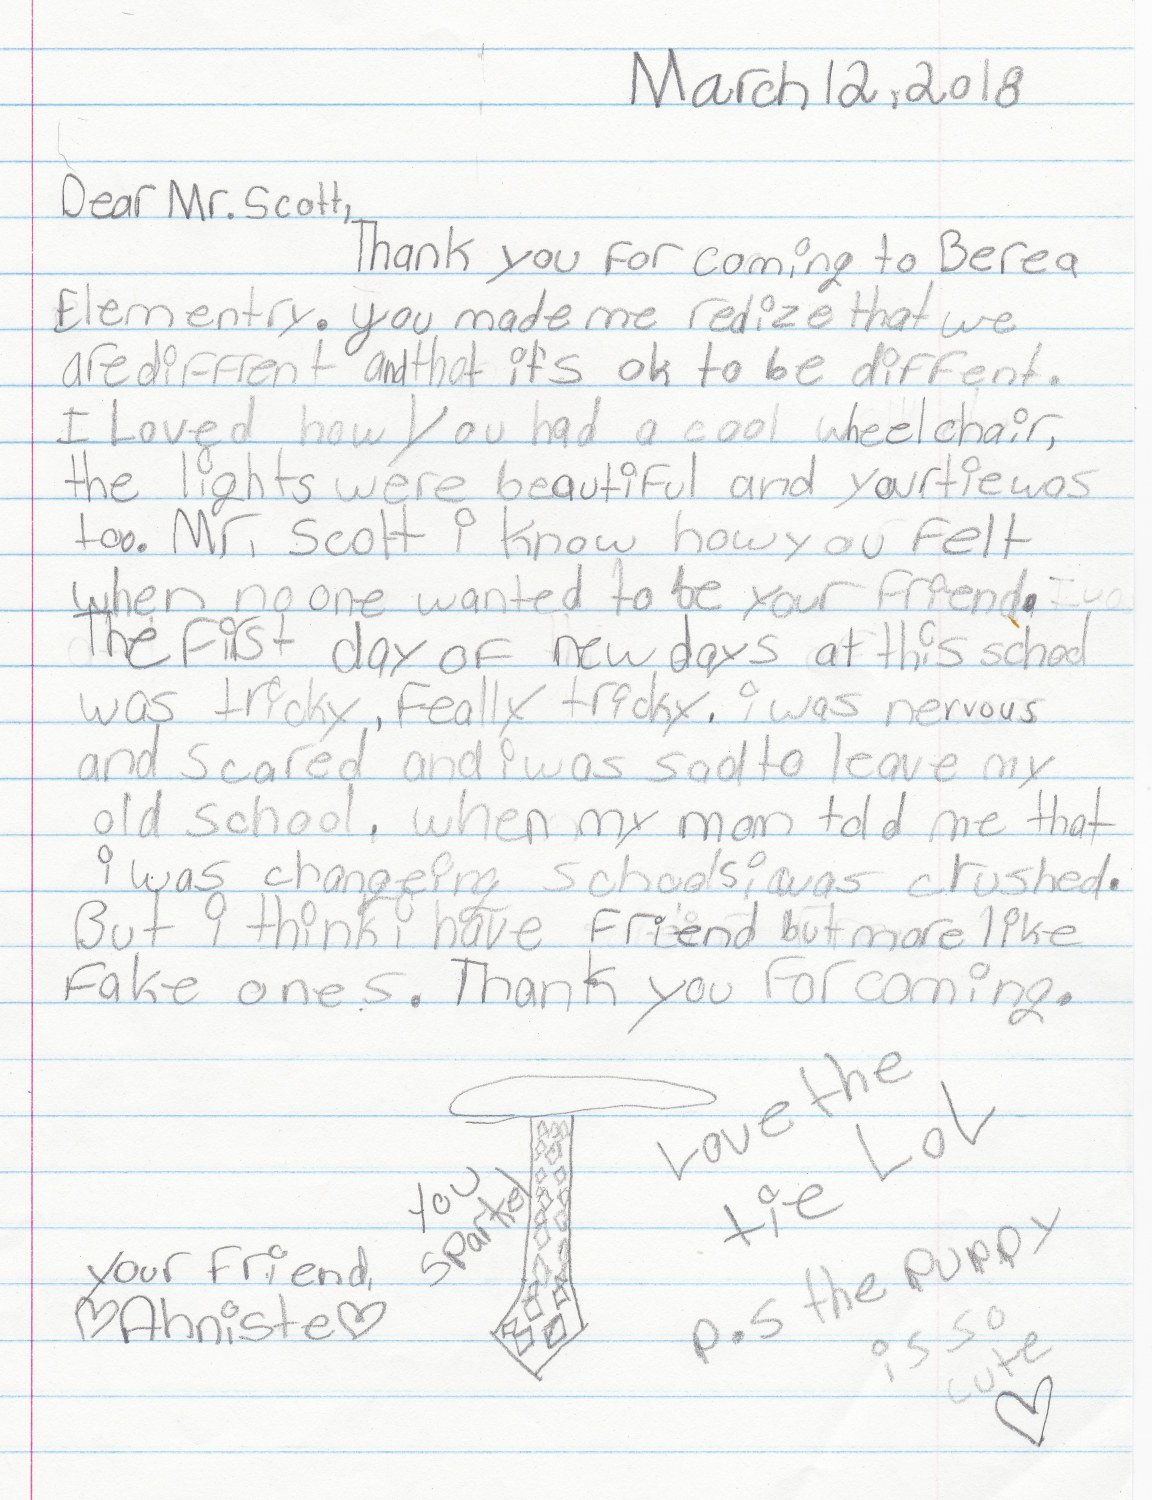 March 12, 2018
Dear Mr. Scott,
Thank you for coming to Berea
Elementry. you made me redlize that we
are diffrent and that it's ok to be diffent.
I Loved how You had a cool wheelchair,
the lights were beautiful and your tie was
too. Mr. Scott i know how you felt
when no one wanted to be your friend.
The first day of new days at this school
was tricky, really tricky. i was nervous
and scared and i was sad to leave my
old school. when my mom told me that
i was changeing schools i was crushed.
But i think i have friend but more like
fake ones. Thank you for coming.
Love the
tie LoL
You
sparkel
your friend,
Ahniste
p.s the puppy
is so
cute